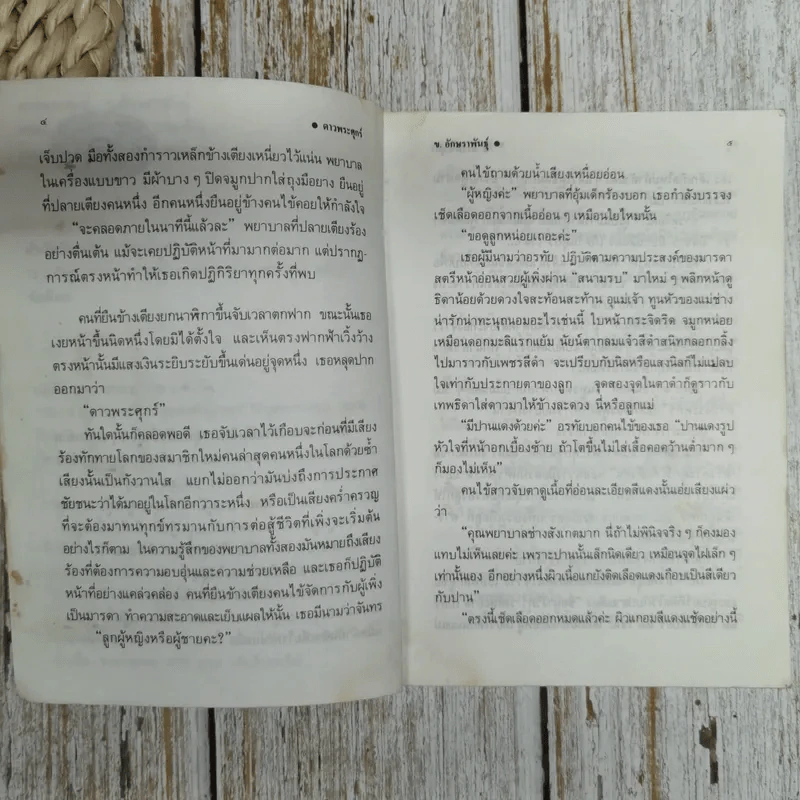 ๔
● ดาวพระศุกร์
เจ็บปวด มือทั้งสองกำราวเหล็กข้างเตียงเหนี่ยวไว้แน่น พยาบาล
ในเครื่องแบบขาว มีผ้าบาง ๆ ปิดจมูกปากใส่ถุงมือยาง ยืนอยู่
ที่ปลายเตียงคนหนึ่ง อีกคนหนึ่งยืนอยู่ข้างคนไข้คอยให้กำลังใจ
“จะคลอดภายในนาทีนี้แล้วละ” พยาบาลที่ปลายเตียงร้อง
อย่างตื่นเต้น แม้จะเคยปฏิบัติหน้าที่มามากต่อมาก แต่ปรากฏ-
การณ์ตรงหน้าทำให้เธอเกิดปฏิกิริยาทุกครั้งที่พบ
คนที่ยืนข้างเตียงยกนาฬิกาขึ้นจับเวลาตกฟาก ขณะนั้นเธอ
เงยหน้าขึ้นนิดหนึ่งโดยมิได้ตั้งใจ และเห็นตรงฟากฟ้าเวิ้งว้าง
ตรงหน้านั้นมีแสงเงินระยิบระยับขึ้นเด่นอยู่จุดหนึ่ง เธอหลุดปาก
ออกมาว่า
“ดาวพระศุกร์”
ทันใดนั้นก็คลอดพอดี เธอจับเวลาไว้เกือบจะก่อนที่มีเสียง
ร้องทักทายโลกของสมาชิกใหม่คนล่าสุดคนหนึ่งในโลกด้วยซ้ำ
เสียงนั้นเป็นกังวานใส แยกไม่ออกว่ามันบ่งถึงการประกาศ
ชัยชนะว่าได้มาอยู่ในโลกอีกวาระหนึ่ง หรือเป็นเสียงคร่ำครวญ
ที่จะต้องมาทนทุกข์ทรมานกับการต่อสู้ชีวิตที่เพิ่งจะเริ่มต้น
อย่างไรก็ตาม ในความรู้สึกของพยาบาลทั้งสองมันหมายถึงเสียง
ร้องที่ต้องการความอบอุ่นและความช่วยเหลือ และเธอก็ปฏิบัติ
หน้าที่อย่างแคล่วคล่อง คนที่ยืนข้างเตียงคนไข้จัดการกับผู้เพิ่ง
เป็นมารดา ทำความสะอาดและเย็บแผลให้นั้น เธอมีนามว่าจันทร
“ลูกผู้หญิงหรือผู้ชายคะ?”
ข. อักษราพันธุ์ ●
๕
คนไข้ถามด้วยน้ำเสียงเหนื่อยอ่อน
“ผู้หญิงค่ะ” พยาบาลที่อุ้มเด็กร้องบอก เธอกำลังบรรจง
เช็ดเลือดออกจากเนื้ออ่อน ๆ เหมือนใยไหมนั้น
“ขอดูลูกหน่อยเถอะค่ะ”
เธอผู้มีนามว่าอรทัย ปฏิบัติตามความประสงค์ของมารดา
สตรีหน้าอ่อนสวยผู้เพิ่งผ่าน “สนามรบ” มาใหม่ ๆ พลิกหน้าดู
ธิดาน้อยด้วยดวงใจสะท้อนสะท้าน อุแม่เจ้า ทูนหัวของแม่ช่าง
น่ารักน่าทะนุถนอมอะไรเช่นนี้ ใบหน้ากระจิดริด จมูกหน่อย
เหมือนดอกมะลิแรกแย้ม นัยน์ตากลมแจ๋วสีดำสนิทกลอกกลิ้ง
ไปมาราวกับเพชรสีดำ จะเปรียบกับนิลหรือแสงนิลก็ไม่แปลบ
ใจเท่ากับประกายตาของลูก จุดสองจุดในตาดำก็ดูราวกับ
เทพธิดาใส่ดาวมาให้ข้างละดวง นี่หรือลูกแม่
“มีปานแดงด้วยค่ะ” อรทัยบอกคนไข้ของเธอ “ปานแดงรูป
หัวใจที่หน้าอกเบื้องซ้าย ถ้าโตขึ้นไม่ใส่เสื้อคอคว้านต่ำมาก ๆ
ก็มองไม่เห็น”
คนไข้สาวจับตาดูเนื้อที่อ่อนละเอียดสีแดงนั้นเอ่ยเสียงแผ่ว
ว่า
“คุณพยาบาลช่างสังเกตมาก นี่ถ้าไม่พินิจจริง ๆ ก็คงมอง
แทบไม่เห็นเลยค่ะ เพราะปานนั้นเล็กนิดเดียว เหมือนจุดไฝเล็ก ๆ
เท่านั้นเอง อีกอย่างหนึ่งผิวเนื้อแกยังติดเลือดแดงเกือบเป็นสีเดียว
กับปาน”
“ตรงนี้เช็ดเลือดออกหมดแล้วค่ะ ผิวแกอมสีแดงชัดอย่างนี้